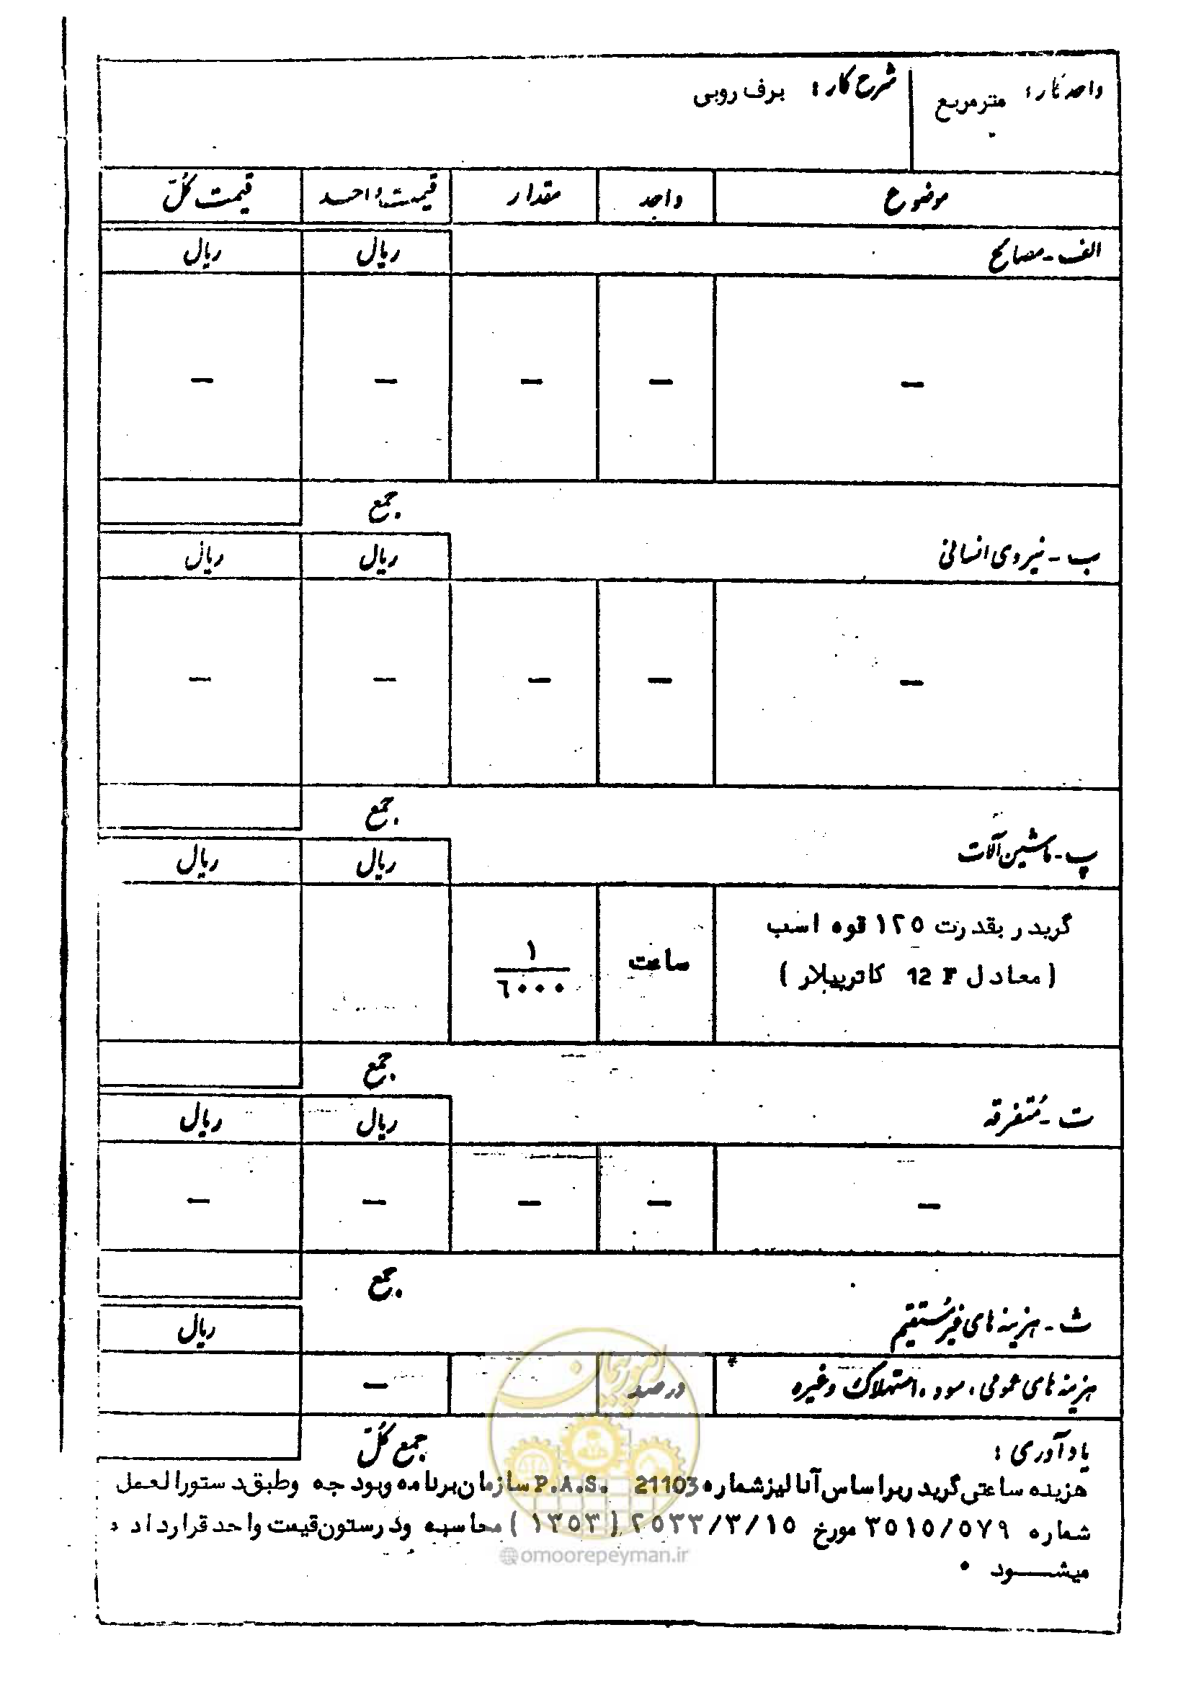 واحد کار: مترمربع
شرح کار: برف روبی
موضوع واحد مقدار قیمت واحد قیمت کلّ
الف - مصالح ریال ریال
— — — — —
جمع
ب - نیروی انسانی ریال ریال
— — — — —
جمع
پ - ماشین آلات ریال ریال
گریدر بقدرت ۱۲۵ قوه اسب
(معادل 12 F کاترپیلار)
ساعت ۱/۶۰۰۰
جمع
ت - مُتفرقه ریال ریال
— — — — —
جمع
ث - هزینه های غیرمُستقیم ریال
هزینه های عمومی، سود، استهلاک وغیره درصد —
جمع کُلّ
یادآوری:
هزینه ساعتی گریدر براساس آنالیزشماره 21103 P.A.S. سازمان برنامه وبودجه وطبق دستورالعمل
شماره ۳۵۱۵/۵۷۹ مورخ ۲۵۳۳/۳/۱۵ (۱۳۵۳) محاسبه ودرستون قیمت واحد قرارداده
میشود •
امور پیمان
@omoorepeyman.ir